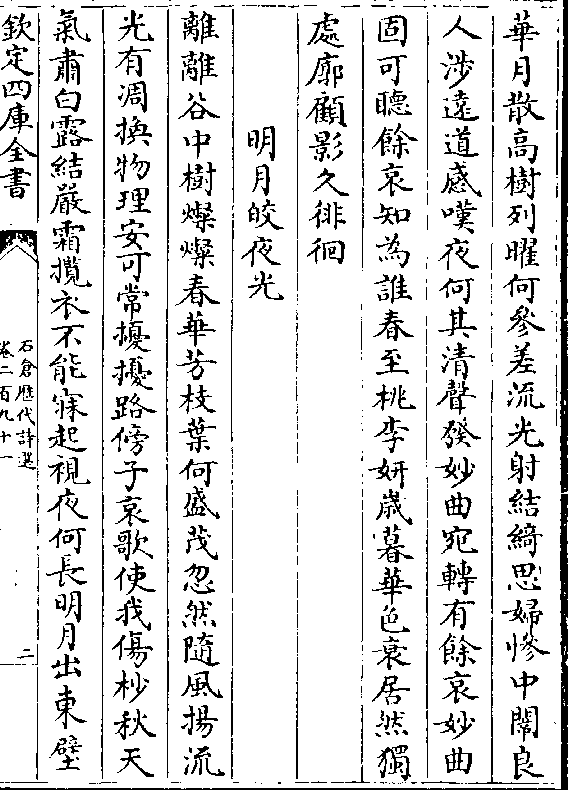 華月散高樹列曜何參差流光射結綺思婦慘中闈良
人涉遠道感嘆夜何其清聲發妙曲宛轉有餘哀妙曲
固可聽餘哀知為誰春至桃李妍歲暮華色衰居然獨
處廓顧影久徘徊
明月皎夜光
離離谷中樹燦燦春華芳枝葉何盛茂忽然隨風揚流
光有凋換物理安可常擾擾路傍子哀歌使我傷杪秋天
氣肅白露結嚴霜攬衣不能寐起視夜何長明月出東壁
欽定四庫全書
石倉歷代詩選
卷二百九十一
二